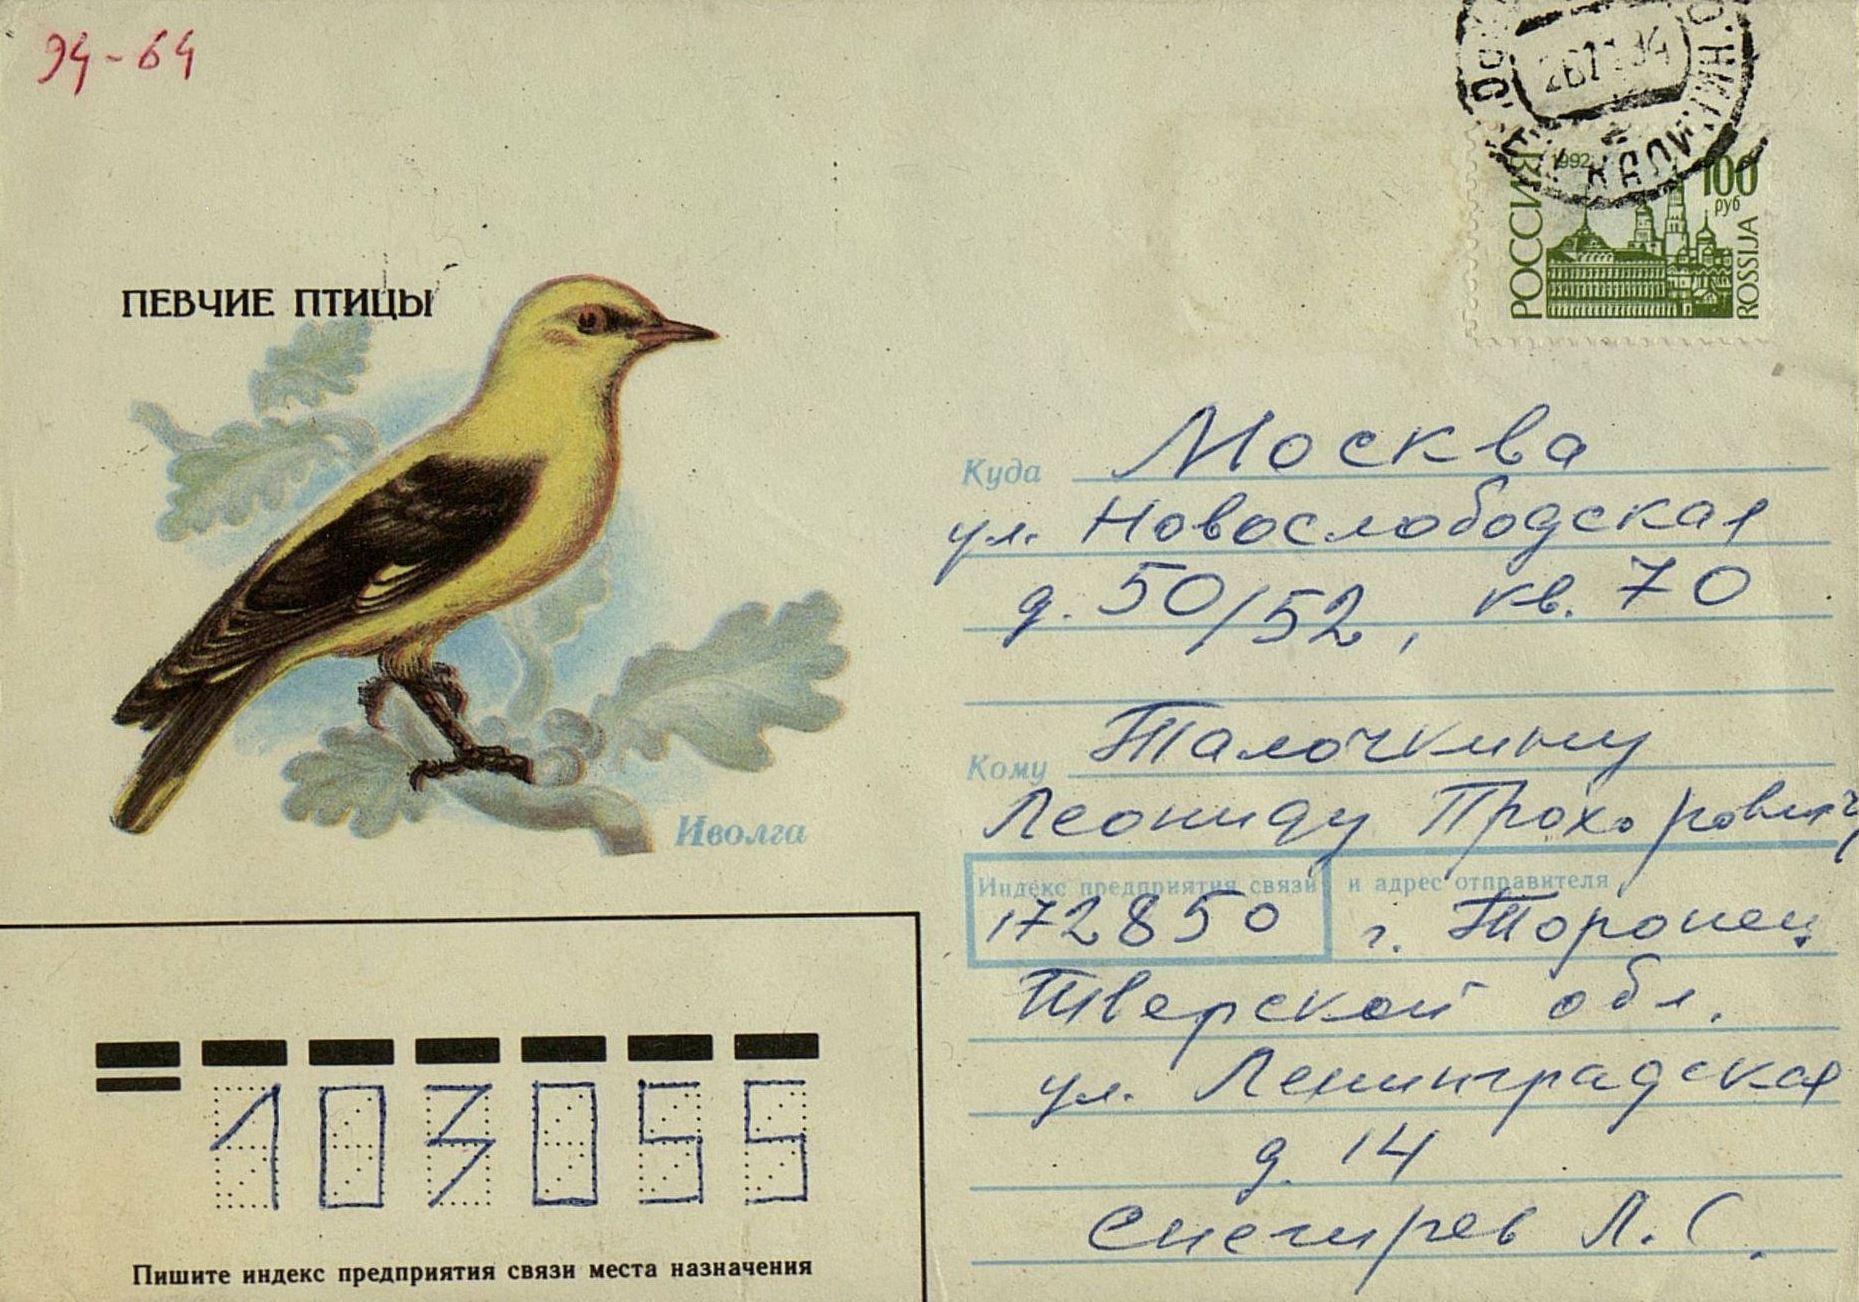 94-64
1992
100
руб
РОССИЯ
ROSSIJA
ПЕВЧИЕ ПТИЦЫ
Иволга
Куда Москва
ул. Новослободская
д. 50/52, кв. 70
Кому Талочкину
Леониду Прохоровичу
Индекс предприятия связи и адрес отправителя
172850 г. Торопец
Тверской обл.
ул. Ленинградская
д. 14
Снегирев Л. С.
103055
Пишите индекс предприятия связи места назначения